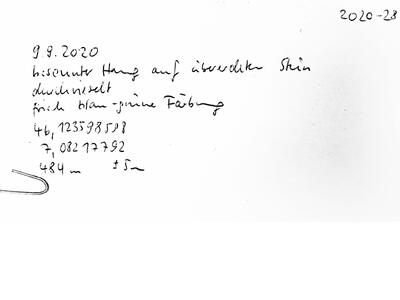 2020-28
9 9.2020
bisennter Hang auf überecktem Stein
durchrieselt
frisch blau-grüne Färbung
46,123598588
7,08217792
484 m ±5m